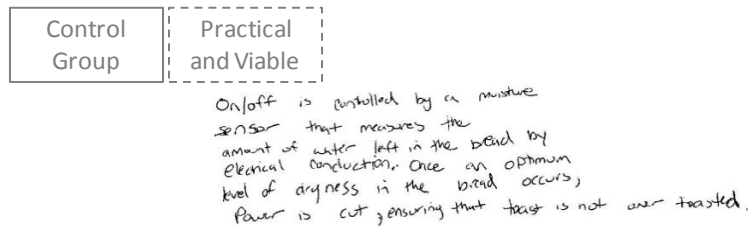 Control
Group
Practical
and Viable
On/off is controlled by a moisture
sensor that measures the
amount of water left in the bread by
electrical conduction. Once an optimum
level of dryness in the bread occurs,
Power is cut, ensuring that toast is not over toasted.